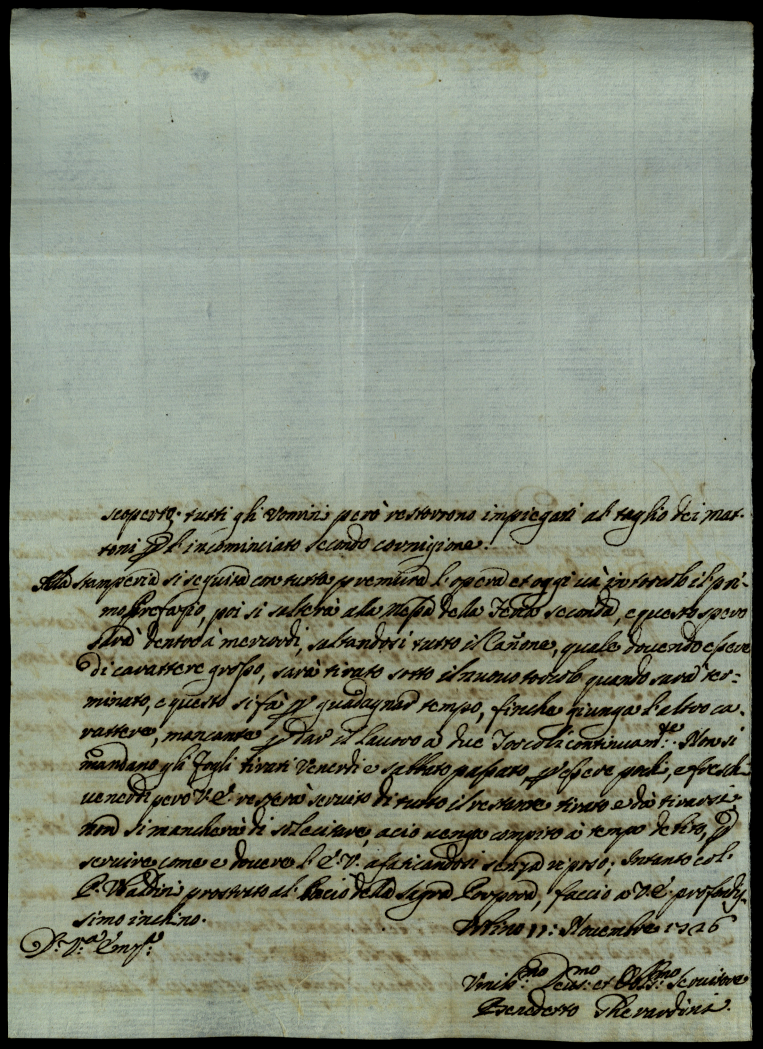 scoperto. tutti gli Vomini però restorono impiegati al taglio dei mat-
toni p l'incominciato secondo cornigione.
Alla stamperia si seguita con tutta premura l'opera et oggi và in torcolo il pri-
mo Prefazio, poi si salterà a la Messa della Feria seconda, e questo spero
sarà dentro à mercordi, saltandosi tutto il Cañone, quale dovendo essere
di carattere grosso, sarà tirato sotto il nuovo torcolo quando sarà ter-
minato, e questo si fà p guadagnar tempo, finche giunga l'altro ca-
rattere, mancante p dar il lavoro a due Torcoli continuam.te. Non si
mandano gli fogli tirati Venerdi e sabbato passato p essere pochi, e freschi
venerdi pero V.E. resterà servito di tutto il restante tirato e dà tirarsi,
non si mancherà di solecitare, acio venga compito a tempo debito, p
servire come e dovere l'E.V. afaticandosi senza riposo; Intanto col
P. Valdini prostrato al bacio della sagra Porpora, faccio a V.E. profondis-
simo inchino.
Urbino 11: Novembre 1726
D. V.ra Em.za
Vmil.mo Deus.mo et Obl.mo Servitore
Benedetto Gherardini.